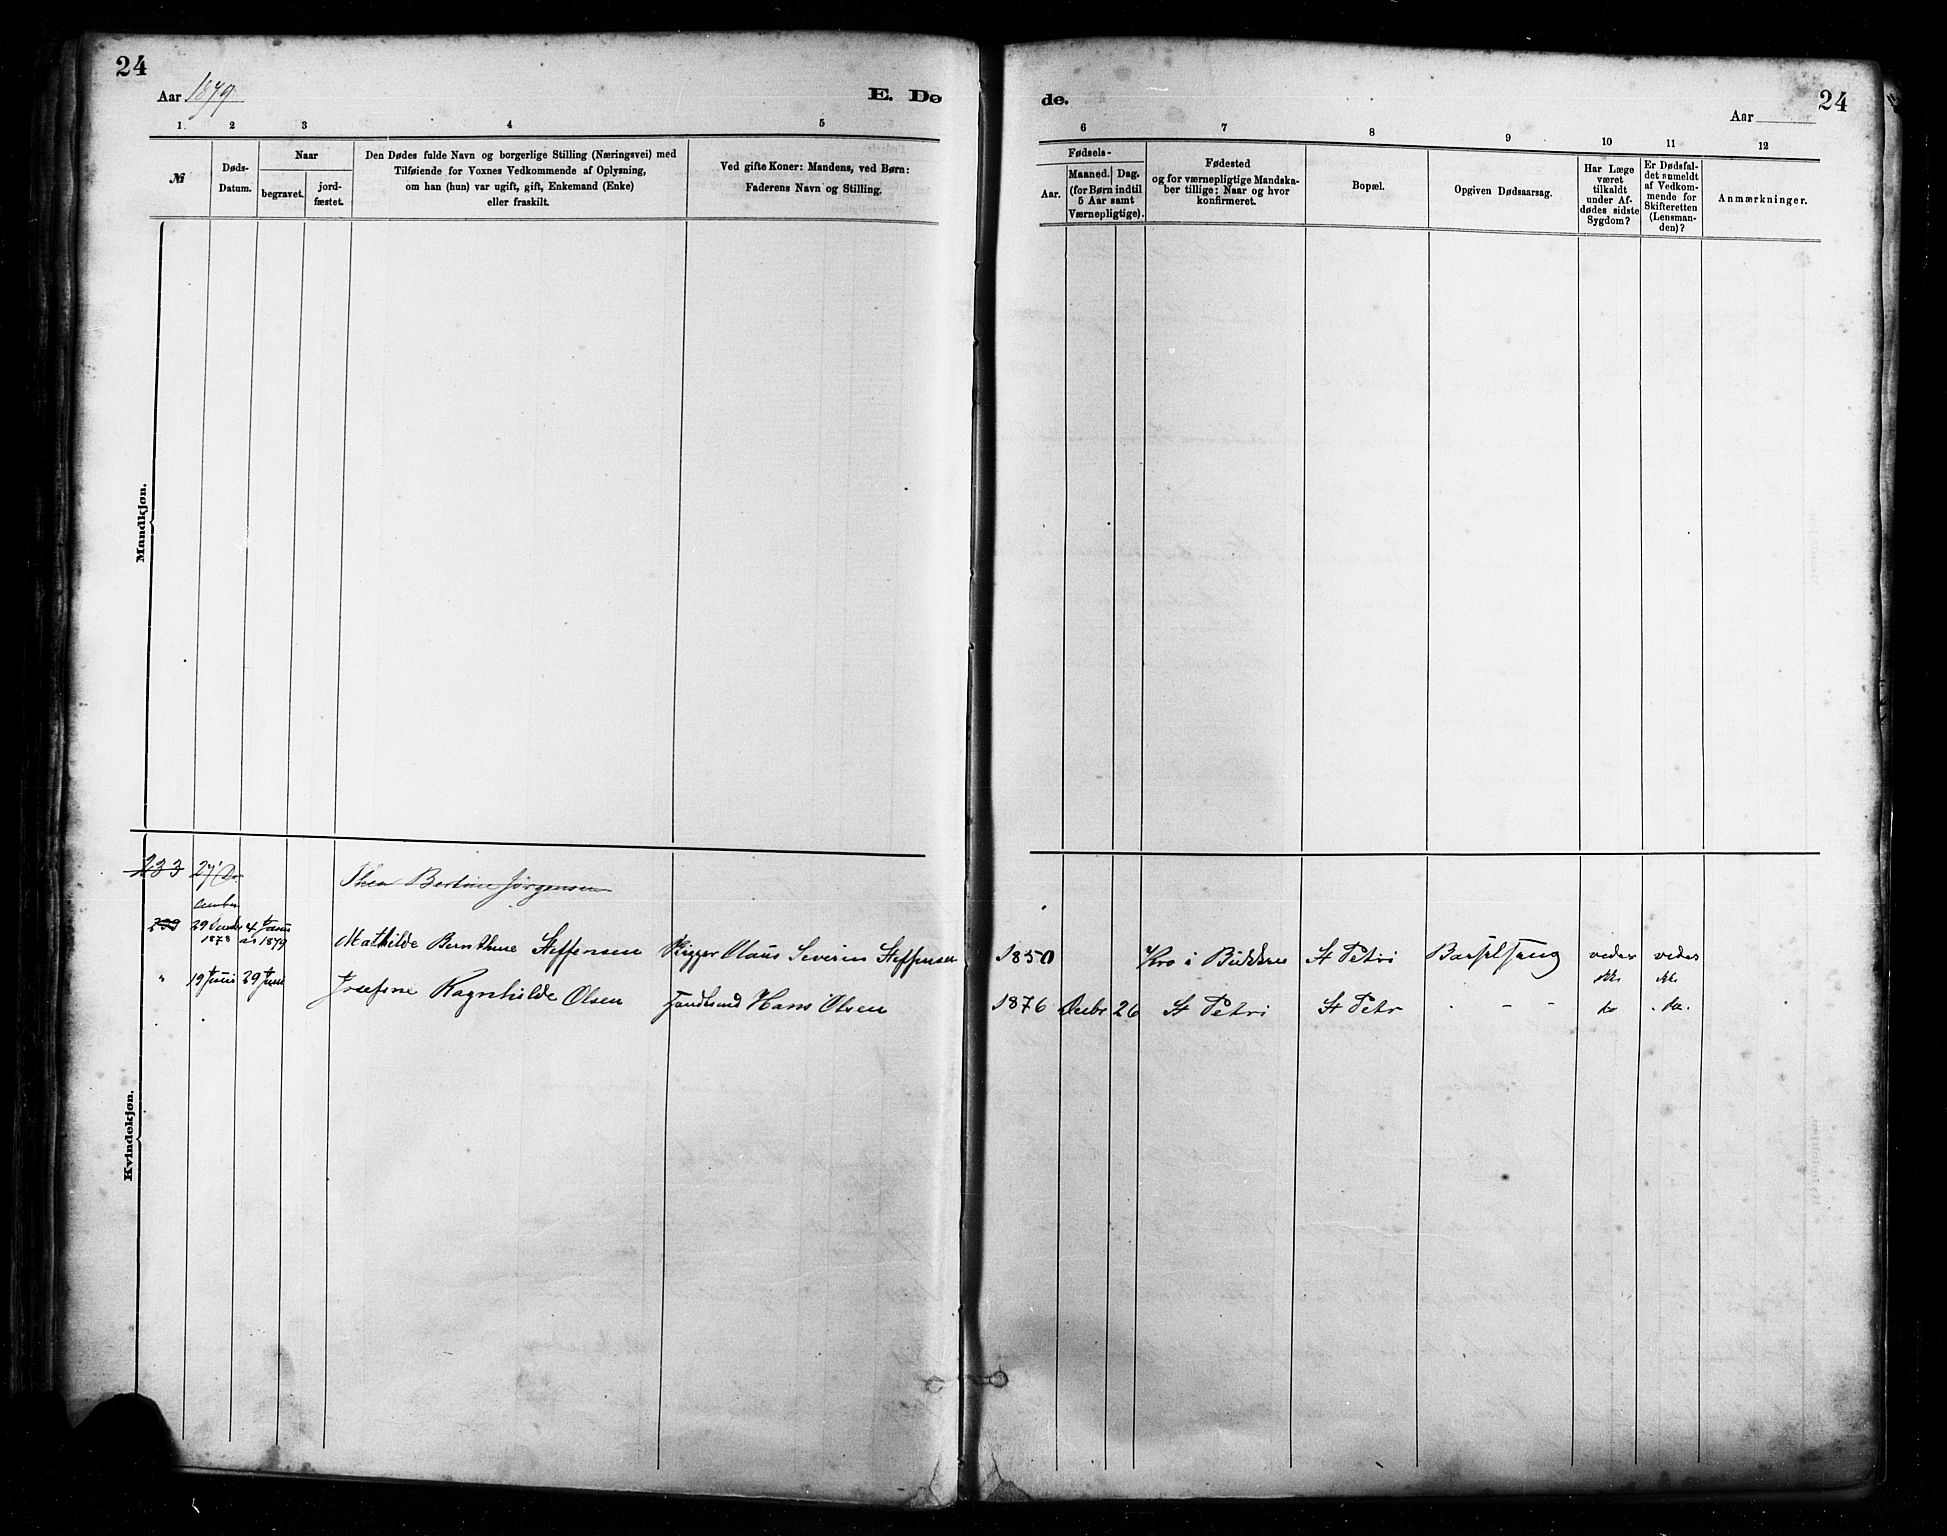 24
Aar 1879
E. Dø
de.
Aar
24
1 2 3 4 5
6 7 8 9 10 11 12
№
Døds-
Datum.
Naar
begravet.
jord-
fæstet.
Den Dødes fulde Navn og borgerlige Stilling (Næringsvei) med
Tilføiende for Voxnes Vedkommende af Oplysning,
om han (hun) var ugift, gift, Enkemand (Enke)
eller fraskilt.
Ved gifte Koner: Mandens, ved Børn:
Faderens Navn og Stilling.
Fødsels-
Aar.
Maaned. Dag.
(for Børn indtil
5 Aar samt
Værnepligtige).
Fødested
og for værnepligtige Mandska-
ber tillige: Naar og hvor
konfirmeret.
Bopæl.
Opgiven Dødsaarsag.
Har Læge
været
tilkaldt
under Af-
dødes sidste
Sygdom?
Er Dødsfal-
det anmeldt
af Vedkom-
mende for
Skifteretten
(Lensman-
den)?
Anmærkninger.
Mandkjøn.
Kvindekjøn.
233 27/ De
cember
Thea Bertine Jørgensen
29 1878 4 1879 Mathilde Bernthine Steffensen Rigger Claus Severin Steffensen 1850 i St Petri Barselseng
" 19 Juni 29 Juni Josefine Ragnhilde Olsen Hans Olsen 1876 Decbr 26 St Petri St Petr - - do do.